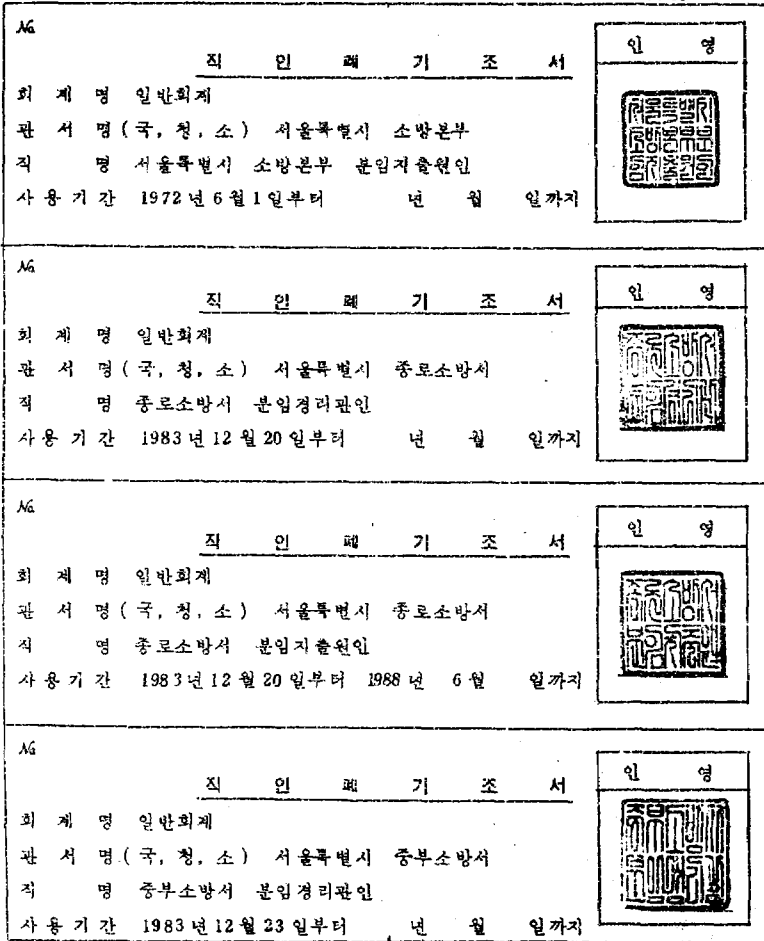 №
직 인 폐 기 조 서
인 영
회 계 명 일반회계
관 서 명(국, 청, 소) 서울특별시 소방본부
직 명 서울특별시 소방본부 분임지출원인
사용기간 1972년 6월 1일부터 년 월 일까지
№
직 인 폐 기 조 서
인 영
회 계 명 일반회계
관 서 명(국, 청, 소) 서울특별시 종로소방서
직 명 종로소방서 분임경리관인
사용기간 1983년 12월 20일부터 년 월 일까지
№
직 인 폐 기 조 서
인 영
회 계 명 일반회계
관 서 명(국, 청, 소) 서울특별시 종로소방서
직 명 종로소방서 분임지출원인
사용기간 1983년 12월 20일부터 1988년 6월 일까지
№
직 인 폐 기 조 서
인 영
회 계 명 일반회계
관 서 명(국, 청, 소) 서울특별시 중부소방서
직 명 중부소방서 분임경리관인
사용기간 1983년 12월 23일부터 년 월 일까지